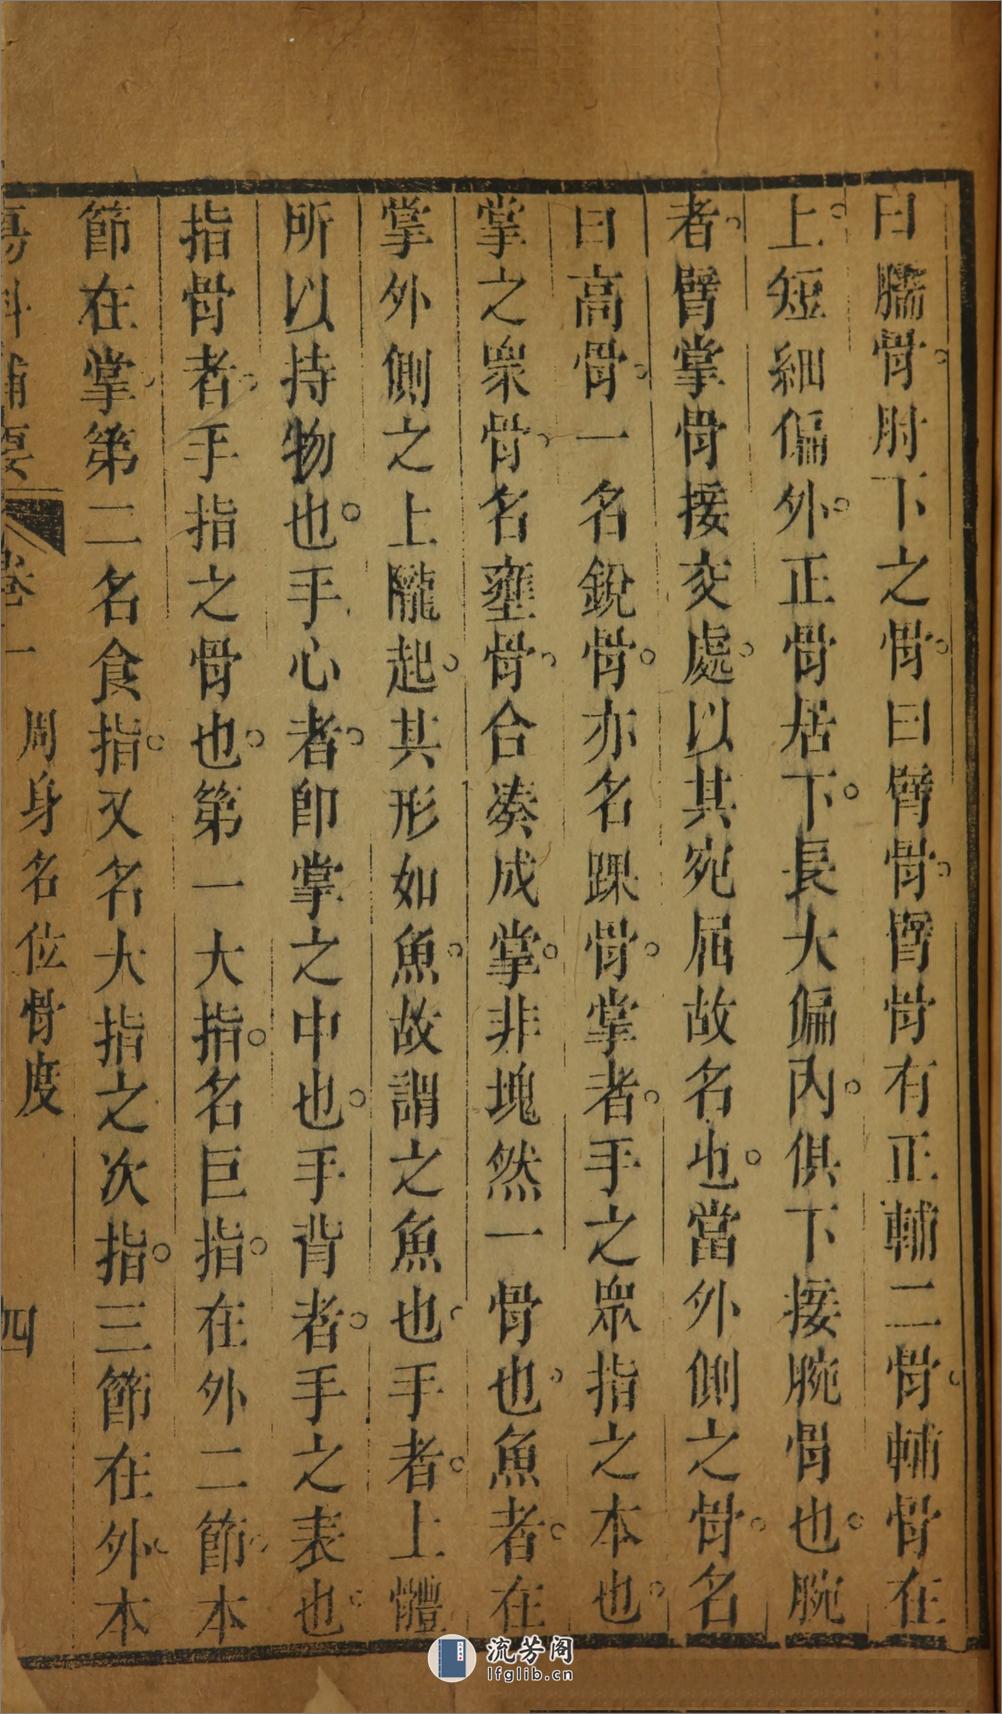 曰臑骨。肘下之骨。曰臂骨。臂骨有正輔二骨。輔骨在
上。短細偏外。正骨居下。長大偏內。俱下接腕骨也。腕
者。臂掌骨接交處。以其宛屈故名也。當外側之骨。名
曰高骨。一名銳骨。亦名踝骨。掌者。手之眾指之本也。
掌之眾骨。名壅骨。合湊成掌。非塊然一骨也。魚者。在
掌外側之上隴起。其形如魚。故謂之魚也。手者。上體
所以持物也。手心者。即掌之中也。手背者。手之表也。
指骨者。手指之骨也。第一大指。名巨指。在外二節。本
節在掌。第二名食指。又名大指之次指。三節在外。本
傷科補要 卷一 周身名位骨度 四
流芳阁
lfglib.cn